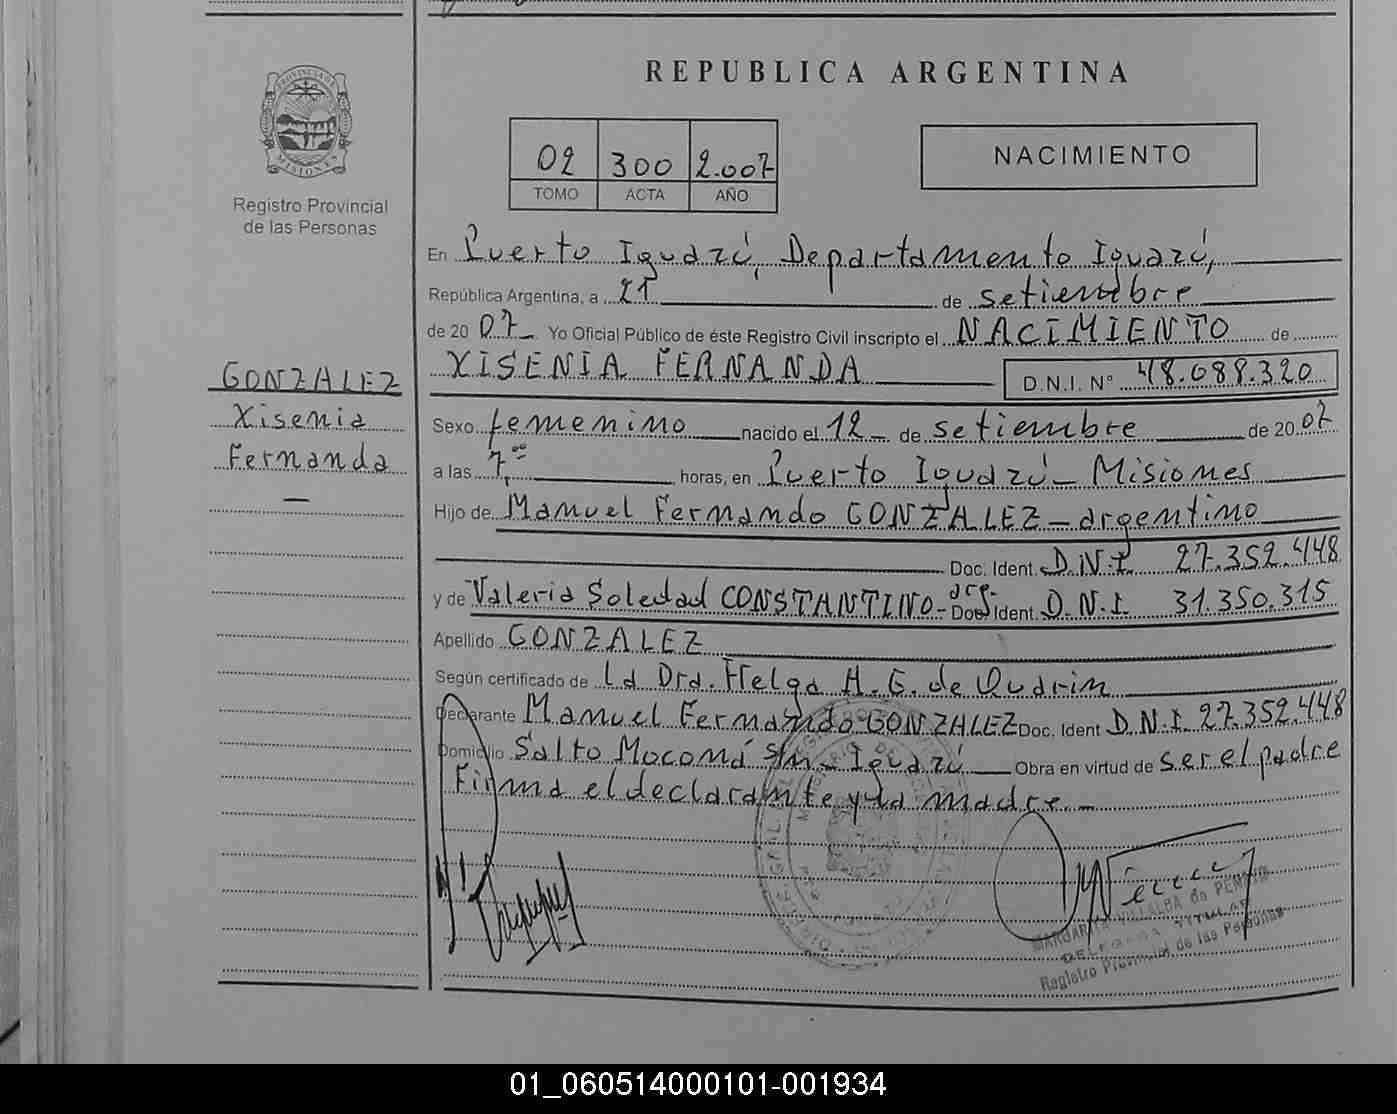 REPUBLICA ARGENTINA
PROVINCIA DE MISIONES
Registro Provincial
de las Personas
02 300 2.007
TOMO ACTA AÑO
NACIMIENTO
En Puerto Iguazú, Departamento Iguazú,
República Argentina, a 21 de setiembre
de 20 07 Yo Oficial Público de éste Registro Civil inscripto el NACIMIENTO de
XISENIA FERNANDA D.N.I. Nº 48.088.320
GONZALEZ
Xisenia
Fernanda
Sexo femenino nacido el 12 de setiembre de 20 07
a las 7,oo horas, en Puerto Iguazú - Misiones
Hijo de Manuel Fernando GONZALEZ - argentino
Doc. Ident. D.N.I. 27.352.448
y de Valeria Soledad CONSTANTINO - arg. Doc. Ident. D.N.I. 31.350.315
Apellido GONZALEZ
Según certificado de La Dra. Helga A. G. de
Declarante Manuel Fernando GONZALEZ Doc. Ident D.N.I. 27.352.448
Domicilio Salto Moconá s/n - Iguazú Obra en virtud de ser el padre
Firma el declarante y la madre -
MARGARITA VILLALBA de
DELEGADA TITULAR
Registro Provincial de las Personas
01_060514000101-001934